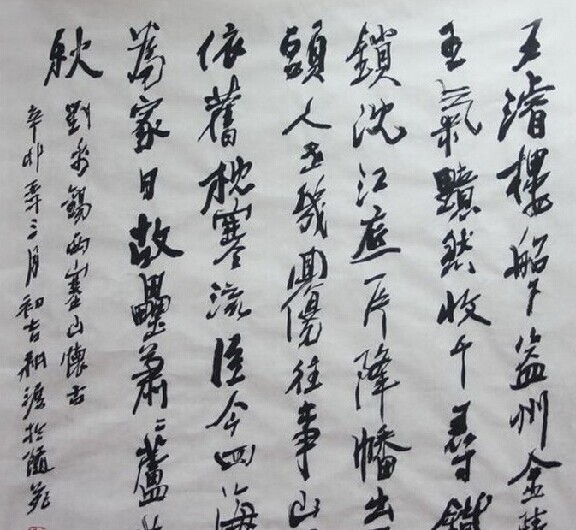 王濬樓船下益州金陵
王氣黯然收千尋鐵
鎖沈江底一片降幡出
頭人世幾回傷往事山
依舊枕寒流從今四海
為家日故壘蕭〻蘆
秋
劉禹錫西塞山懷古
辛卯三月初吉於